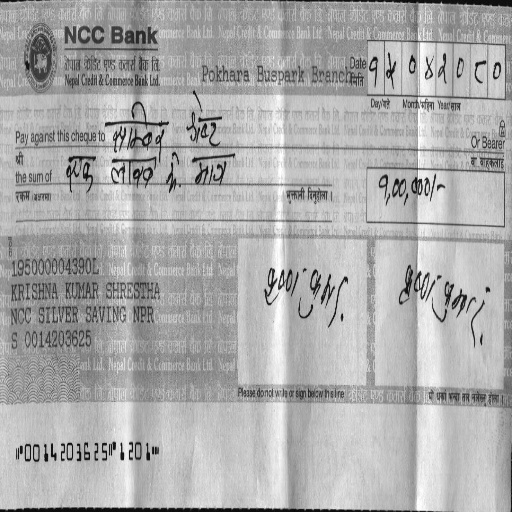 NCC Bank
नेपाल क्रेडिट एण्ड कमर्स बैंक लि.
Nepal Credit & Commerce Bank Ltd.
Pokhara Buspark Branch
Date
मिति
१५०४२०८०
Day/गते Month/महिना Year/साल
Pay against this cheque to
श्री
Or Bearer
वा वाहकलाई
the sum of एक लाख रू. मात्र
रकम (अक्षरमा)
भुक्तानी दिनुहोला ।
१,००,०००/-
195000004390L
KRISHNA KUMAR SHRESTHA
NCC SILVER SAVING NPR
S 0014203625
Please do not write or sign below this line
⑈0014203625⑈1201⑈